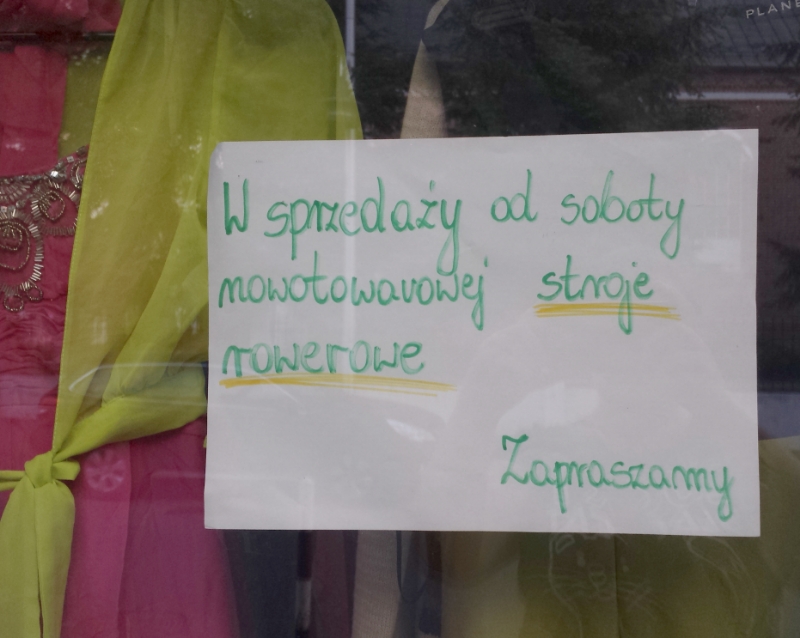 W sprzedaży od soboty
nowotowarowej stroje
rowerowe
Zapraszamy
PLANE